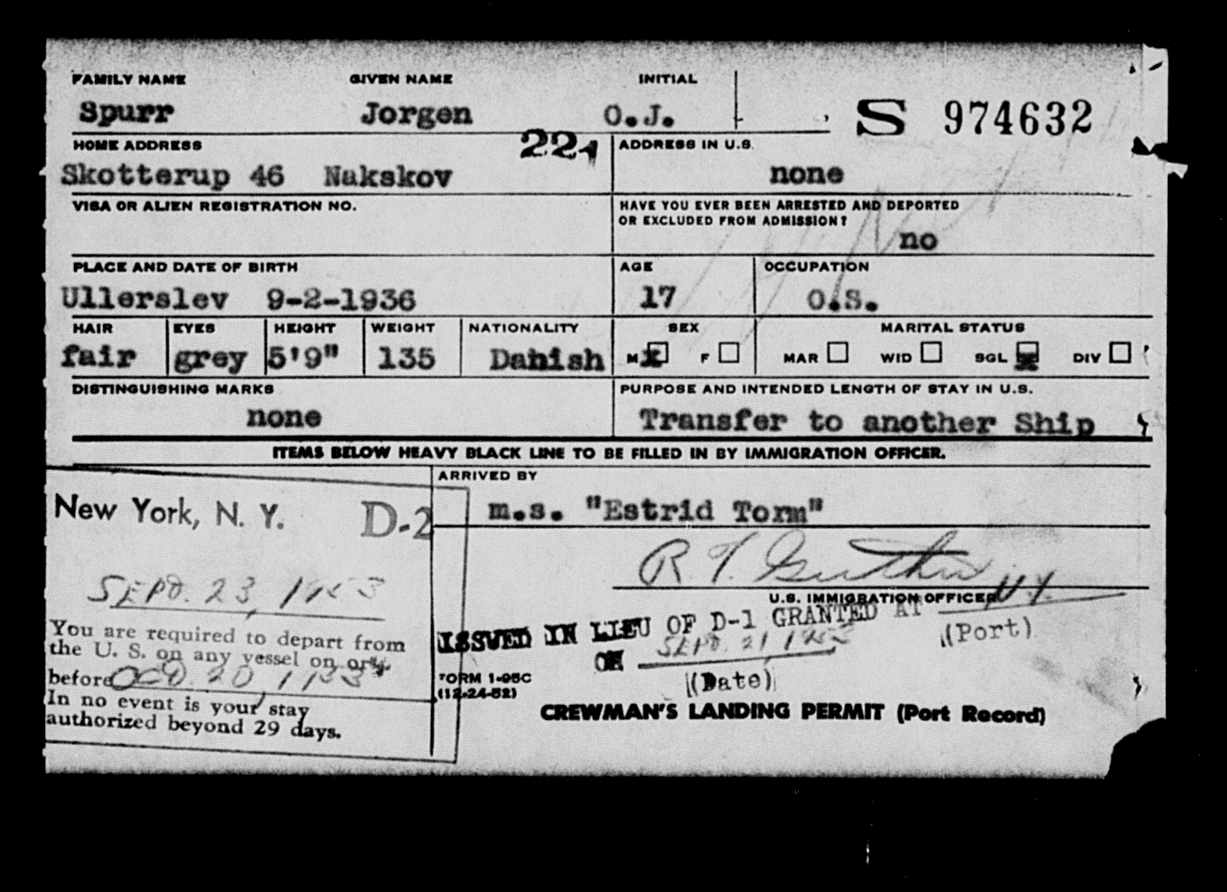 FAMILY NAME GIVEN NAME INITIAL
Spurr Jorgen O.J. S 974632
HOME ADDRESS 22 ADDRESS IN U.S.
Skotterup 46 Nakskov none
VISA OR ALIEN REGISTRATION NO. HAVE YOU EVER BEEN ARRESTED AND DEPORTED
OR EXCLUDED FROM ADMISSION?
no
PLACE AND DATE OF BIRTH AGE OCCUPATION
Ullerslev 9-2-1936 17 O.S.
HAIR EYES HEIGHT WEIGHT NATIONALITY SEX MARITAL STATUS
fair grey 5'9" 135 Danish M x F MAR WID SGL x DIV
DISTINGUISHING MARKS PURPOSE AND INTENDED LENGTH OF STAY IN U.S.
none Transfer to another Ship
ITEMS BELOW HEAVY BLACK LINE TO BE FILLED IN BY IMMIGRATION OFFICER.
ARRIVED BY
New York, N. Y. D-2 m.s. "Estrid Torm"
R. T.
U.S. IMMIGRATION OFFICER
SEPT. 23, 1953
ISSUED IN LIEU OF D-1 GRANTED AT N.Y.
(Port)
ON SEPT. 21, 1953
(Date)
You are required to depart from
the U. S. on any vessel on or
before OCT. 20, 1953
In no event is your stay
authorized beyond 29 days.
FORM I-95C
(12-24-52)
CREWMAN'S LANDING PERMIT (Port Record)